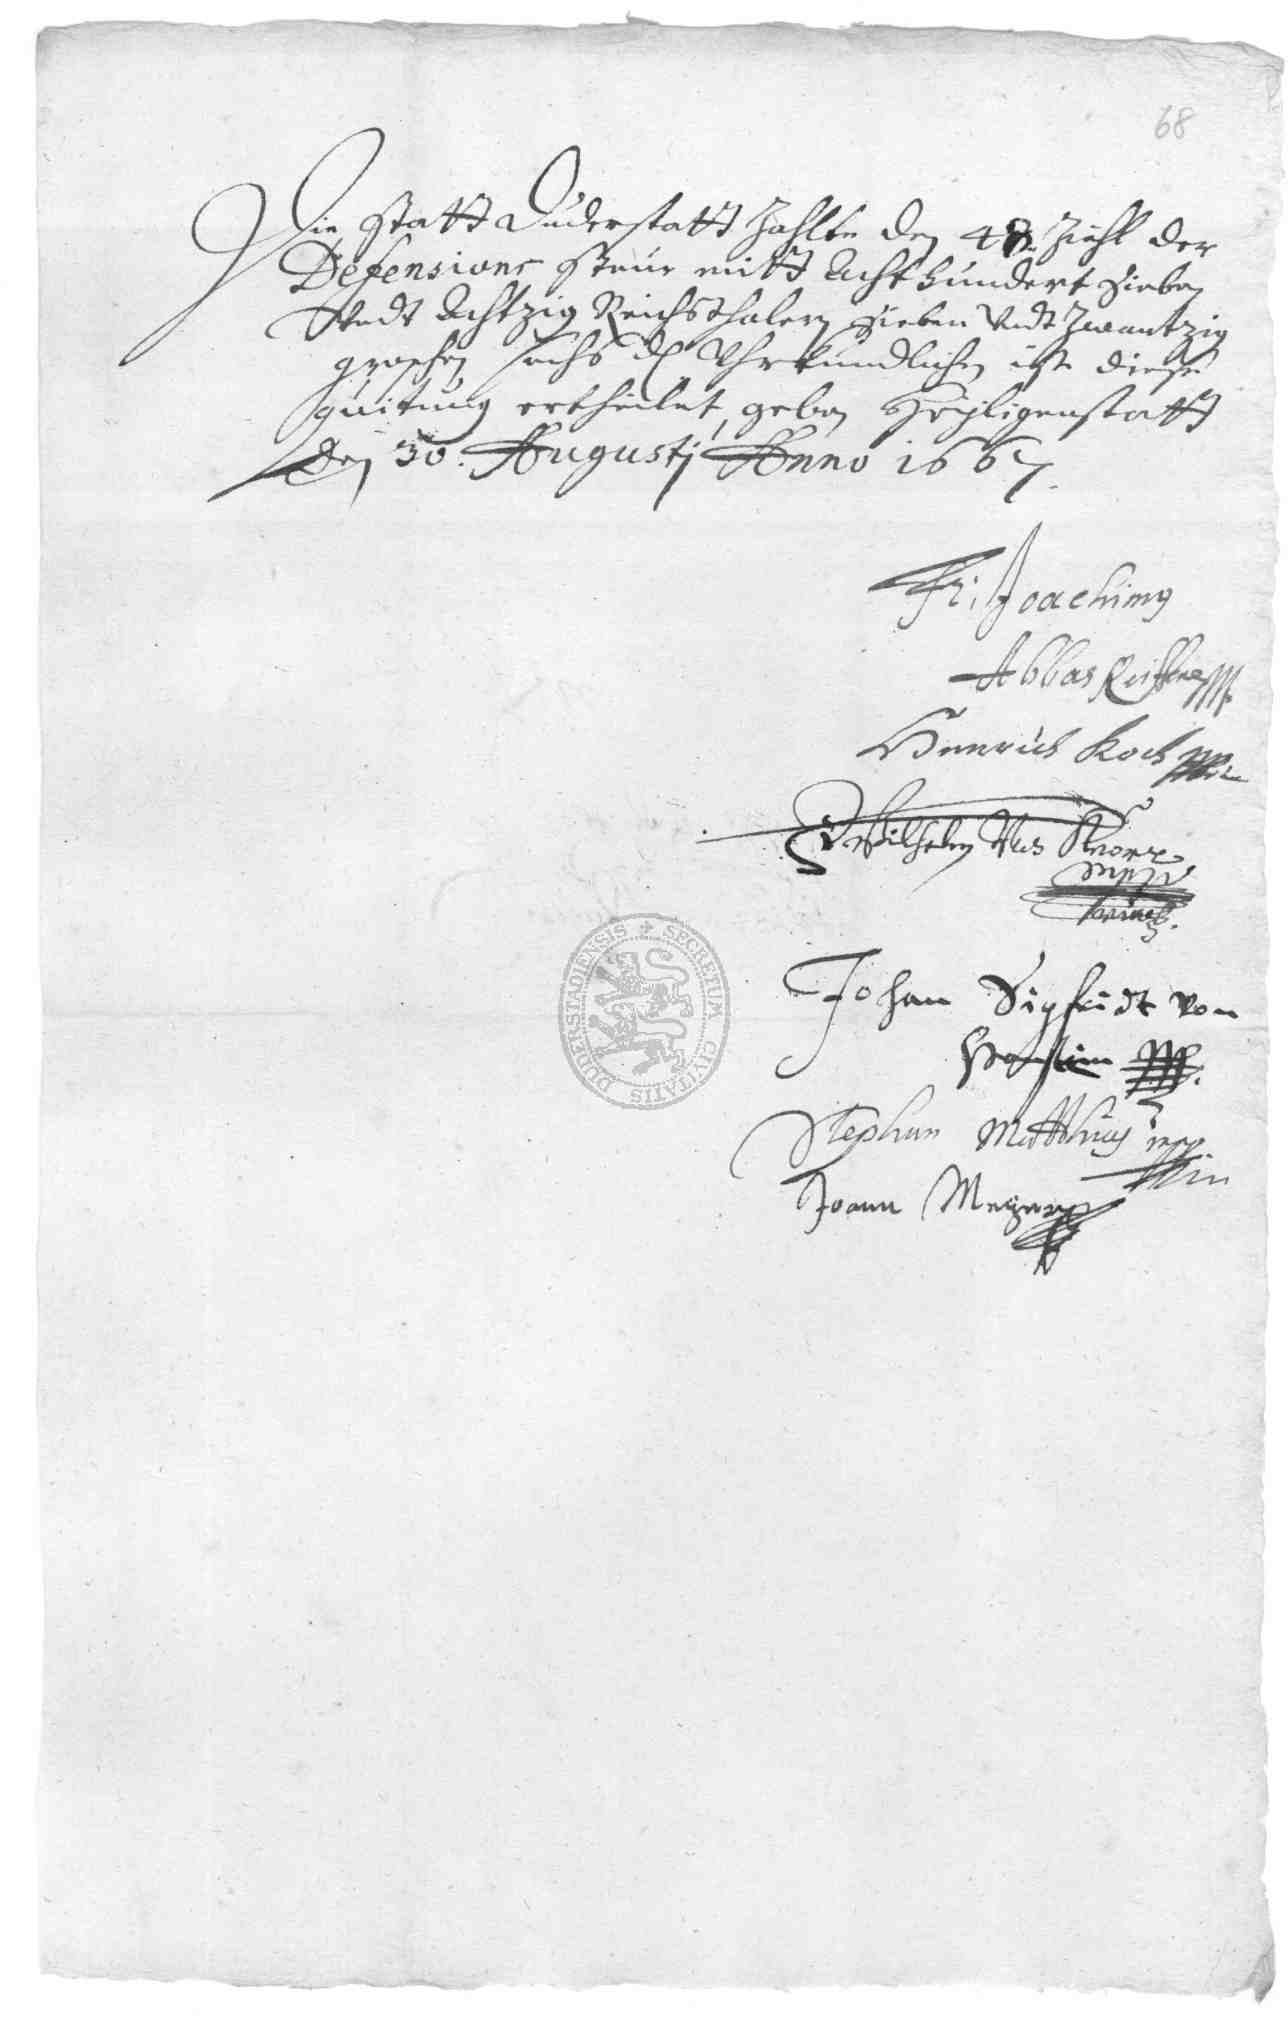 68
Die Statt Duderstatt zahlte den 48. Ziehl der
Defensions Steur mitt Acht hundert sieben
Undt Achtzig Reichsthalern sieben Undt zwantzig
groschen sechs d. Uhrkundlichen ist diese
quitung ertheilet, geben Heyligenstatt
den 30. Augustj Anno 1667.
Fr. Joachimg
Abbas Reiffenst.
Henrich Koch mpp
Wilhelm Knorr
mpp
Johan Sigfridt von
Hanstein mpp.
Stephan Matthiaß mpp
Joann Meyer
DUDERSTADIENSIS ✢ SECRETUM CIVITATIS